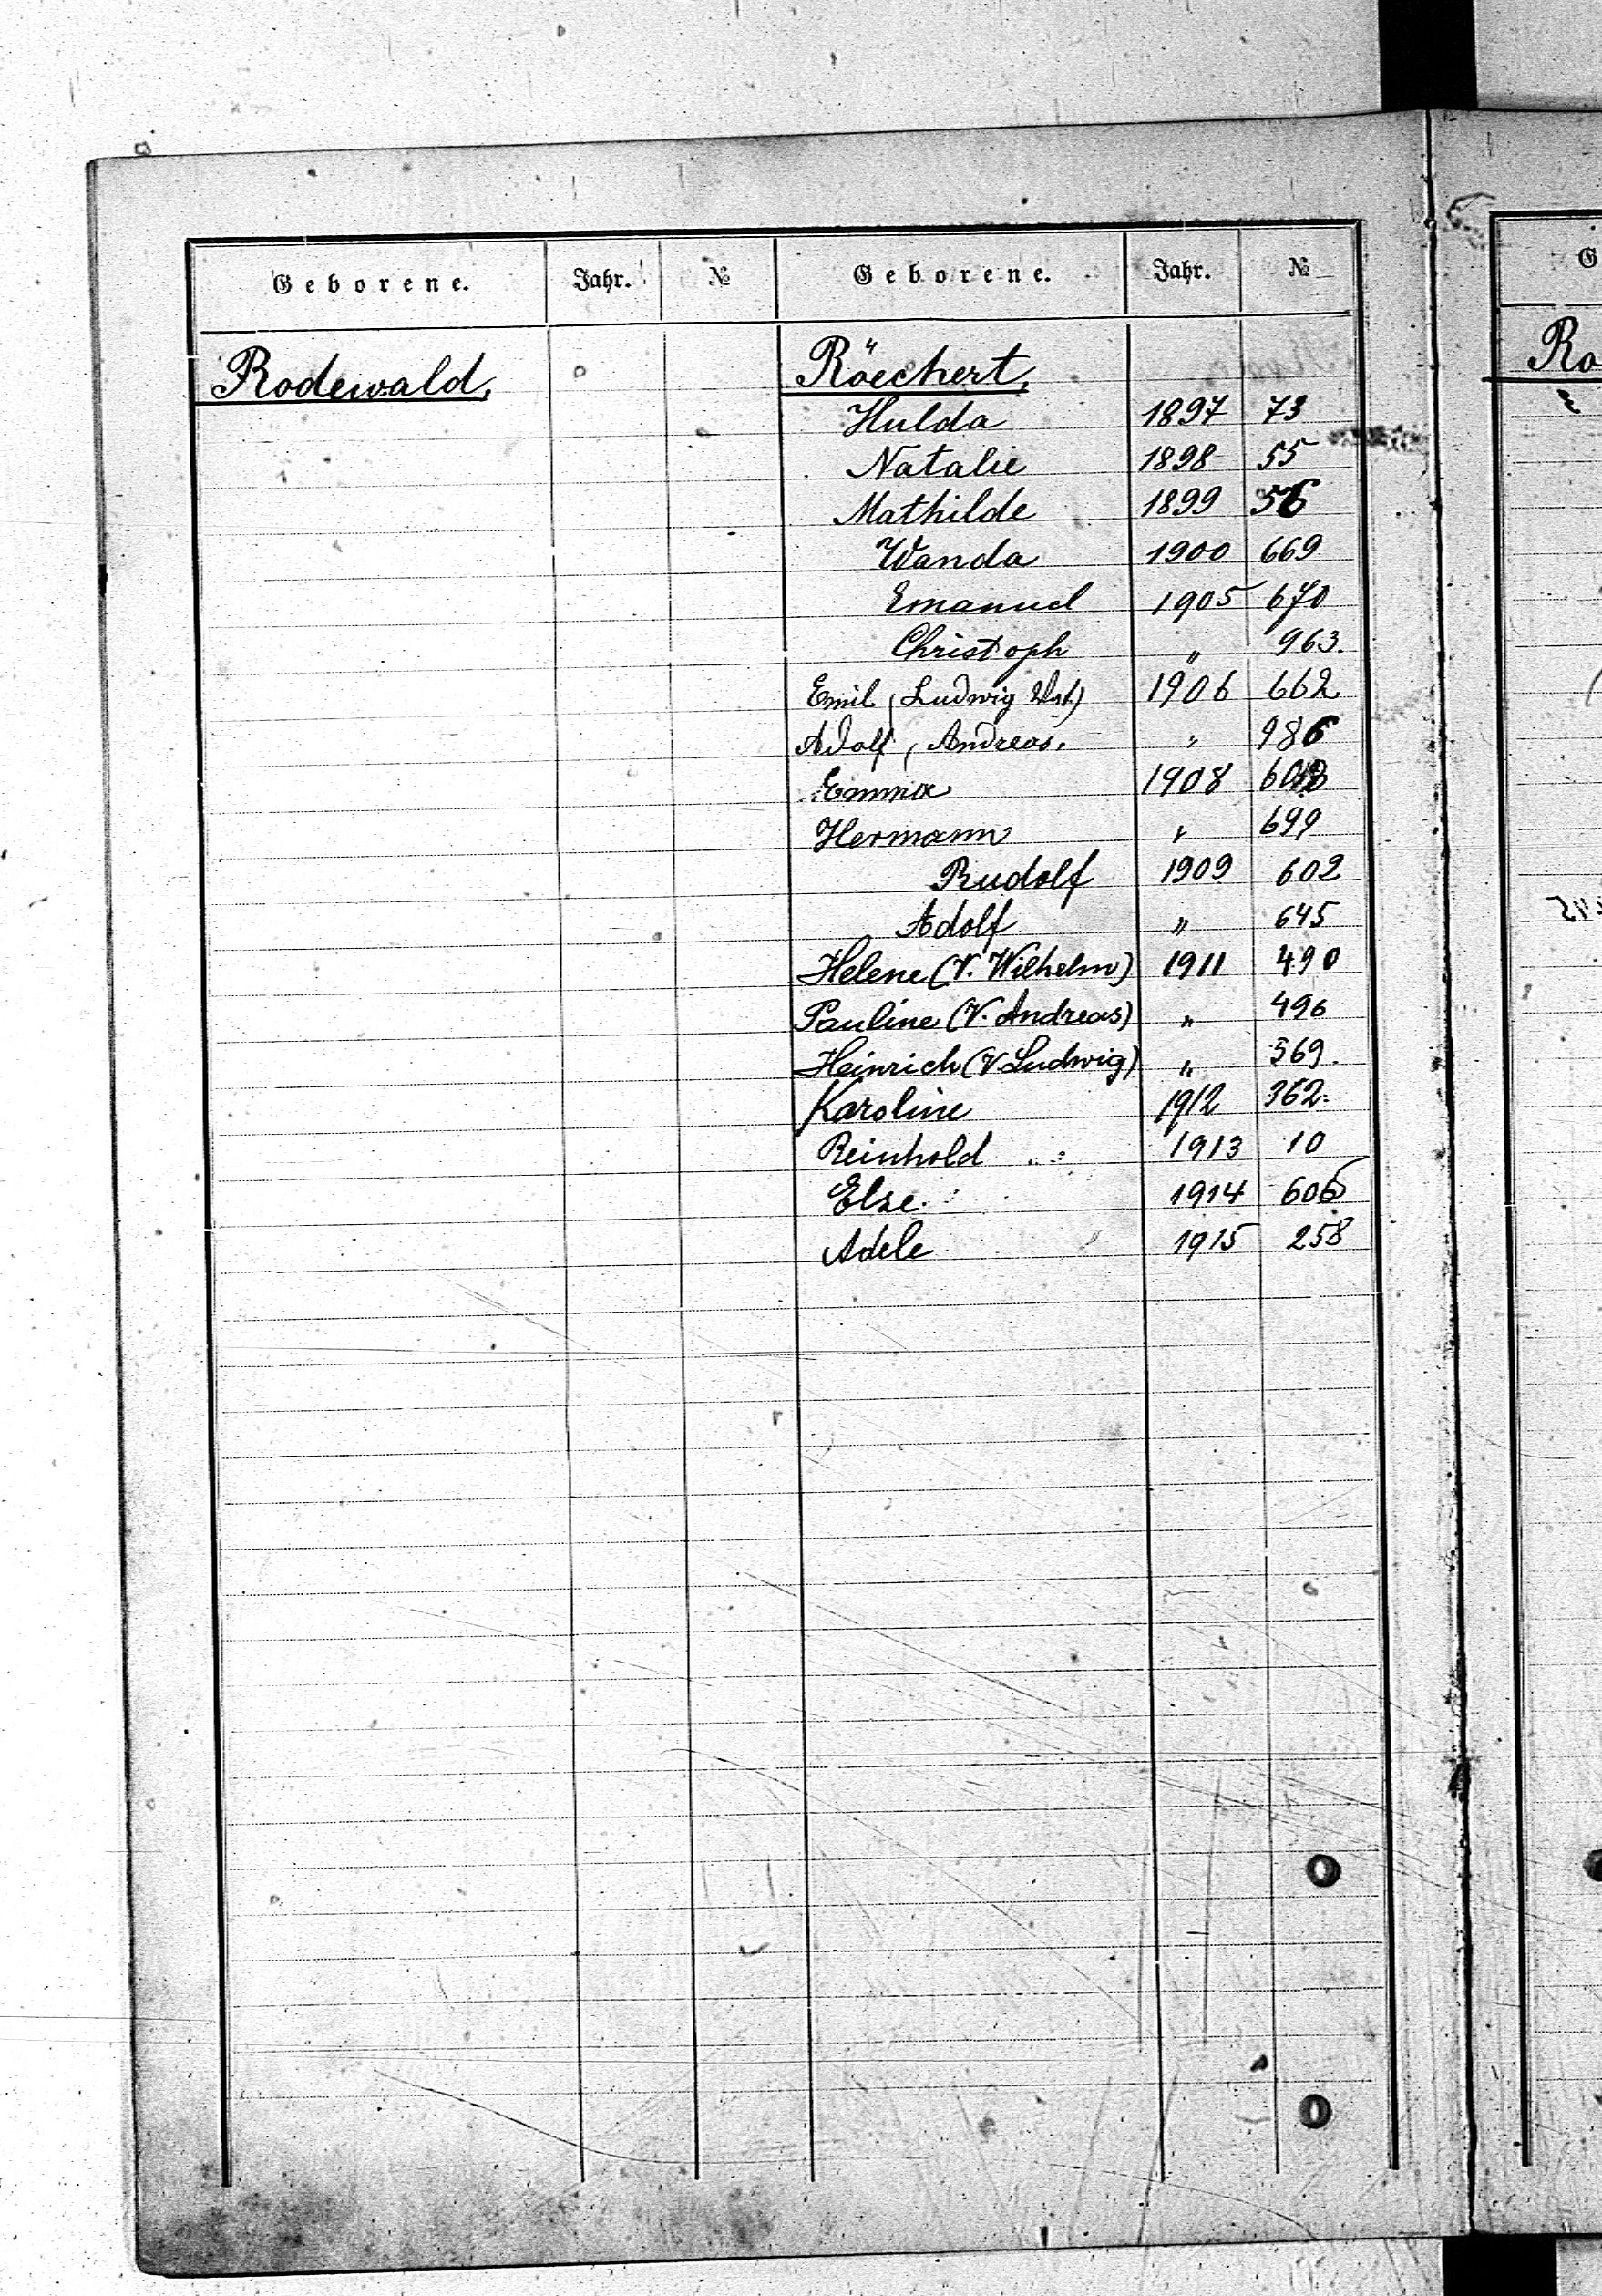 Geborene. Jahr. № Geborene. Jahr. №
Rodewald,
Röechert,
Hulda 1897 73
Natalie 1898 55
Mathilde 1899 56
Wanda 1900 669
Emanuel 1905 670
Christoph " 963.
Emil (Ludwig 1906 662
Adolf, Andreas. " 986
Emma 1908
Hermann " 699
Rudolf 1909 602
Adolf " 645
Helene (V. Wilhelm) 1911 490
Pauline (V. Andreas) " 496
Heinrich (V Ludwig) " 369.
Karoline 1912 362.
Reinhold 1913 10
Else. 1914 606
Adele 1915 258
G
Ro